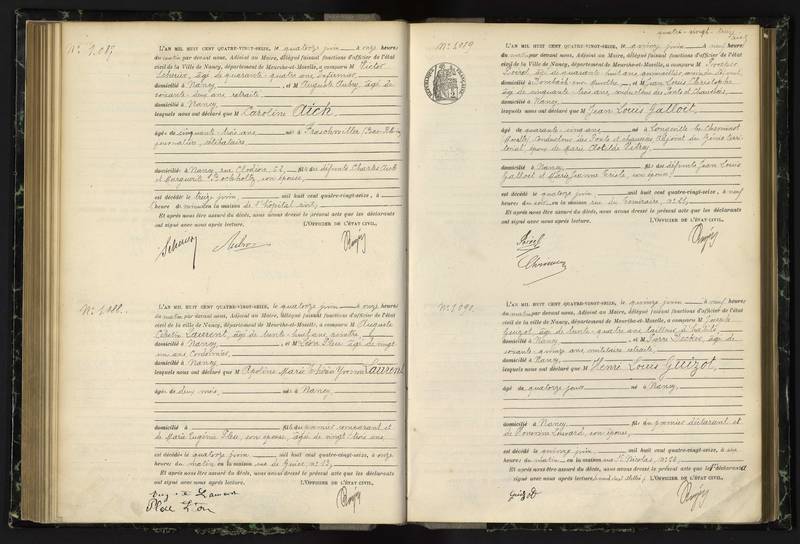 N° 1.087
L'AN MIL HUIT CENT QUATRE-VINGT-SEIZE, le quatorze juin à onze heures
du matin par devant nous, Adjoint au Maire, délégué faisant fonctions d'officier de l'état
civil de la Ville de Nancy, département de Meurthe-et-Moselle, a comparu M Victor
âgé de quarante quatre ans infirmier
domicilié à Nancy, et M Auguste Aubry, âgé de
soixante deux ans retraité
domicilié à Nancy
lesquels nous ont déclaré que M Caroline Aich
âgé de cinquante trois ans né à Froschwiller Bas-Rhin
journalière, célibataire
domicilié à Nancy, rue Clodion, fil des défunts Charles Aich
et Marguerite son épouse,
est décédé le treize juin, mil huit cent quatre-vingt-seize, à
heure du en la maison de l'hôpital civil,
Et après nous être assuré du décès, nous avons dressé le présent acte que les déclarants
ont signé avec nous après lecture. L'OFFICIER DE L'ÉTAT CIVIL,
N° 1.088
L'AN MIL HUIT CENT QUATRE-VINGT-SEIZE, le quatorze juin à onze heures
du matin par devant nous, Adjoint au Maire, délégué faisant fonctions d'officier de l'état
civil de la ville de Nancy, département de Meurthe-et-Moselle, a comparu M Auguste
Célestin Laurent, âgé de trente huit ans,
domicilié à Nancy, et M Léon Pleu, âgé de vingt
un ans Cordonnier,
domicilié à Nancy
lesquels nous ont déclaré que M Apoline Marie Thérèse Yvonne Laurent
âgé de deux mois, né à Nancy
domicilié à fil du premier comparant et
de Marie Eugénie Pleu, son épouse, âgée de vingt trois ans
est décédé le quatorze juin, mil huit cent quatre-vingt-seize, à onze
heures du matin, en la maison rue de Guise, n° 13,
Et après nous être assuré du décès, nous avons dressé le présent acte que les déclarants
ont signé avec nous après lecture. L'OFFICIER DE L'ÉTAT CIVIL,
N° 1089
L'AN MIL HUIT CENT QUATRE-VINGT-SEIZE, le quinze juin à neuf heures
du matin par devant nous, Adjoint au Maire, délégué faisant fonctions d'officier de l'état
civil de la Ville de Nancy, département de Meurthe-et-Moselle, a comparu M
âgé de quarante huit ans
domicilié à, et M Jean Louis Christophe
âgé de cinquante trois ans, conducteur des Ponts et Chaussées,
domicilié à Nancy
lesquels nous ont déclaré que M Jean Louis Galloit
âgé de quarante cinq ans né à Longeville lès Cheminot
Moselle conducteur des Ponts et chaussées, Adjoint du Génie terri-
torial, époux de Marie Clotilde Pitoy
domicilié à Nancy fil des défunts Jean Louis
Galloit et Marie Jeanne son épouse
est décédé le quatorze juin, mil huit cent quatre-vingt-seize, à neuf
heures du soir en la maison rue du Téméraire, n° 21,
Et après nous être assuré du décès, nous avons dressé le présent acte que les déclarants
ont signé avec nous après lecture. L'OFFICIER DE L'ÉTAT CIVIL,
N° 1.090
L'AN MIL HUIT CENT QUATRE-VINGT-SEIZE, le quinze juin à neuf heures
du matin par devant nous, Adjoint au Maire, délégué faisant fonctions d'officier de l'état
civil de la ville de Nancy, département de Meurthe-et-Moselle, a comparu M Joseph
Guizot, âgé de trente quatre ans tailleur d'habits
domicilié à Nancy, et M Pierre Decker, âgé de
soixante quinze ans, militaire retraité
domicilié à Nancy
lesquels nous ont déclaré que M Henri Louis Guizot
âgé de quatorze jours né à Nancy
domicilié à Nancy fil du premier déclarant et
de Honorine son épouse,
est décédé le quinze juin, mil huit cent quatre-vingt-seize, à
heures du matin en la maison rue St Nicolas, n°
Et après nous être assuré du décès, nous avons dressé le présent acte que le déclarant
signé avec nous après lecture. L'OFFICIER DE L'ÉTAT CIVIL,
Guizot